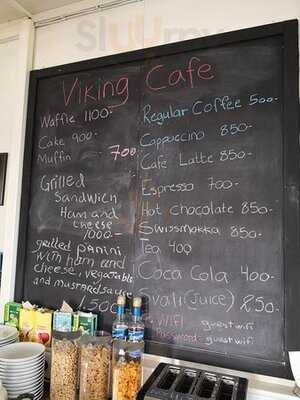 Viking Cafe
Waffle 1100-
Cake 900-
Muffin 700
Grilled
Sandwich
Ham and
cheese
1000-
grilled panini
with ham and
cheese, vegetable
and mustard sauce
1.500
Regular Coffee 500-
Cappuccino 850-
Cafe Latte 850-
Espresso 700-
Hot chocolate 850-
Swissmokka 850-
Tea 400
Coca Cola 400-
Svali (Juice) 250-
WIFI guest wifi
Password: guest wifi